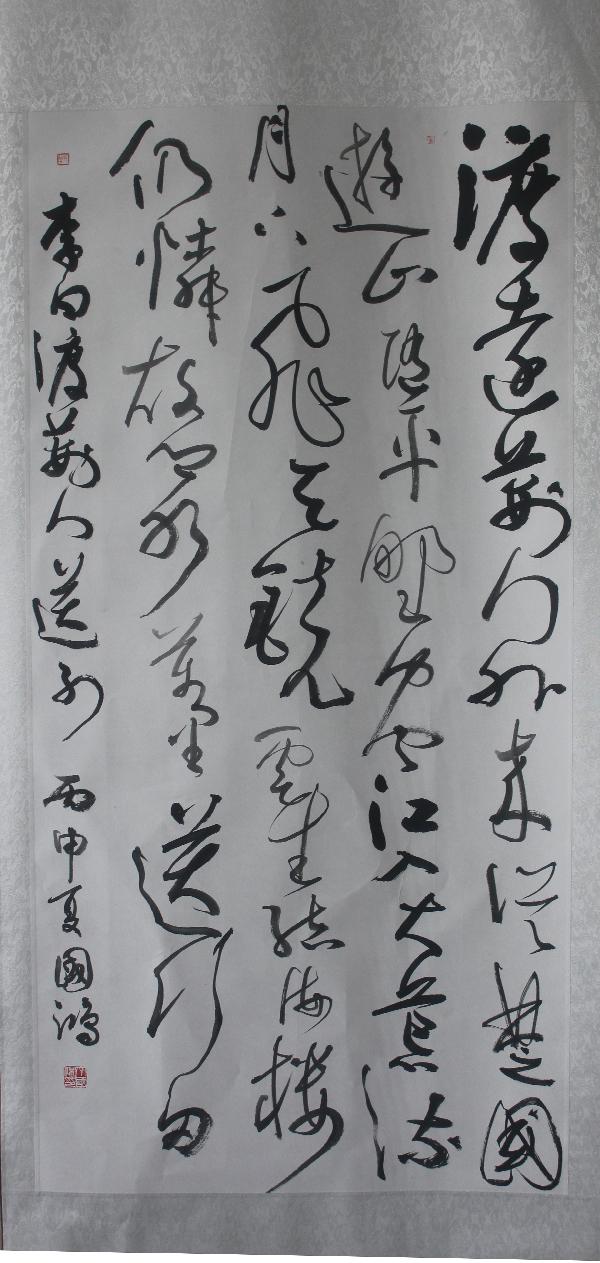 渡遠荊門外來從楚國
遊山隨平野盡江入大荒流
月下飛天鏡雲生結海樓
仍憐故鄉水萬里送行舟
李白渡荊門送別 丙申夏國鴻